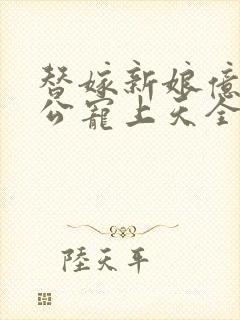 替嫁新娘億
公寵上天全
陸天平